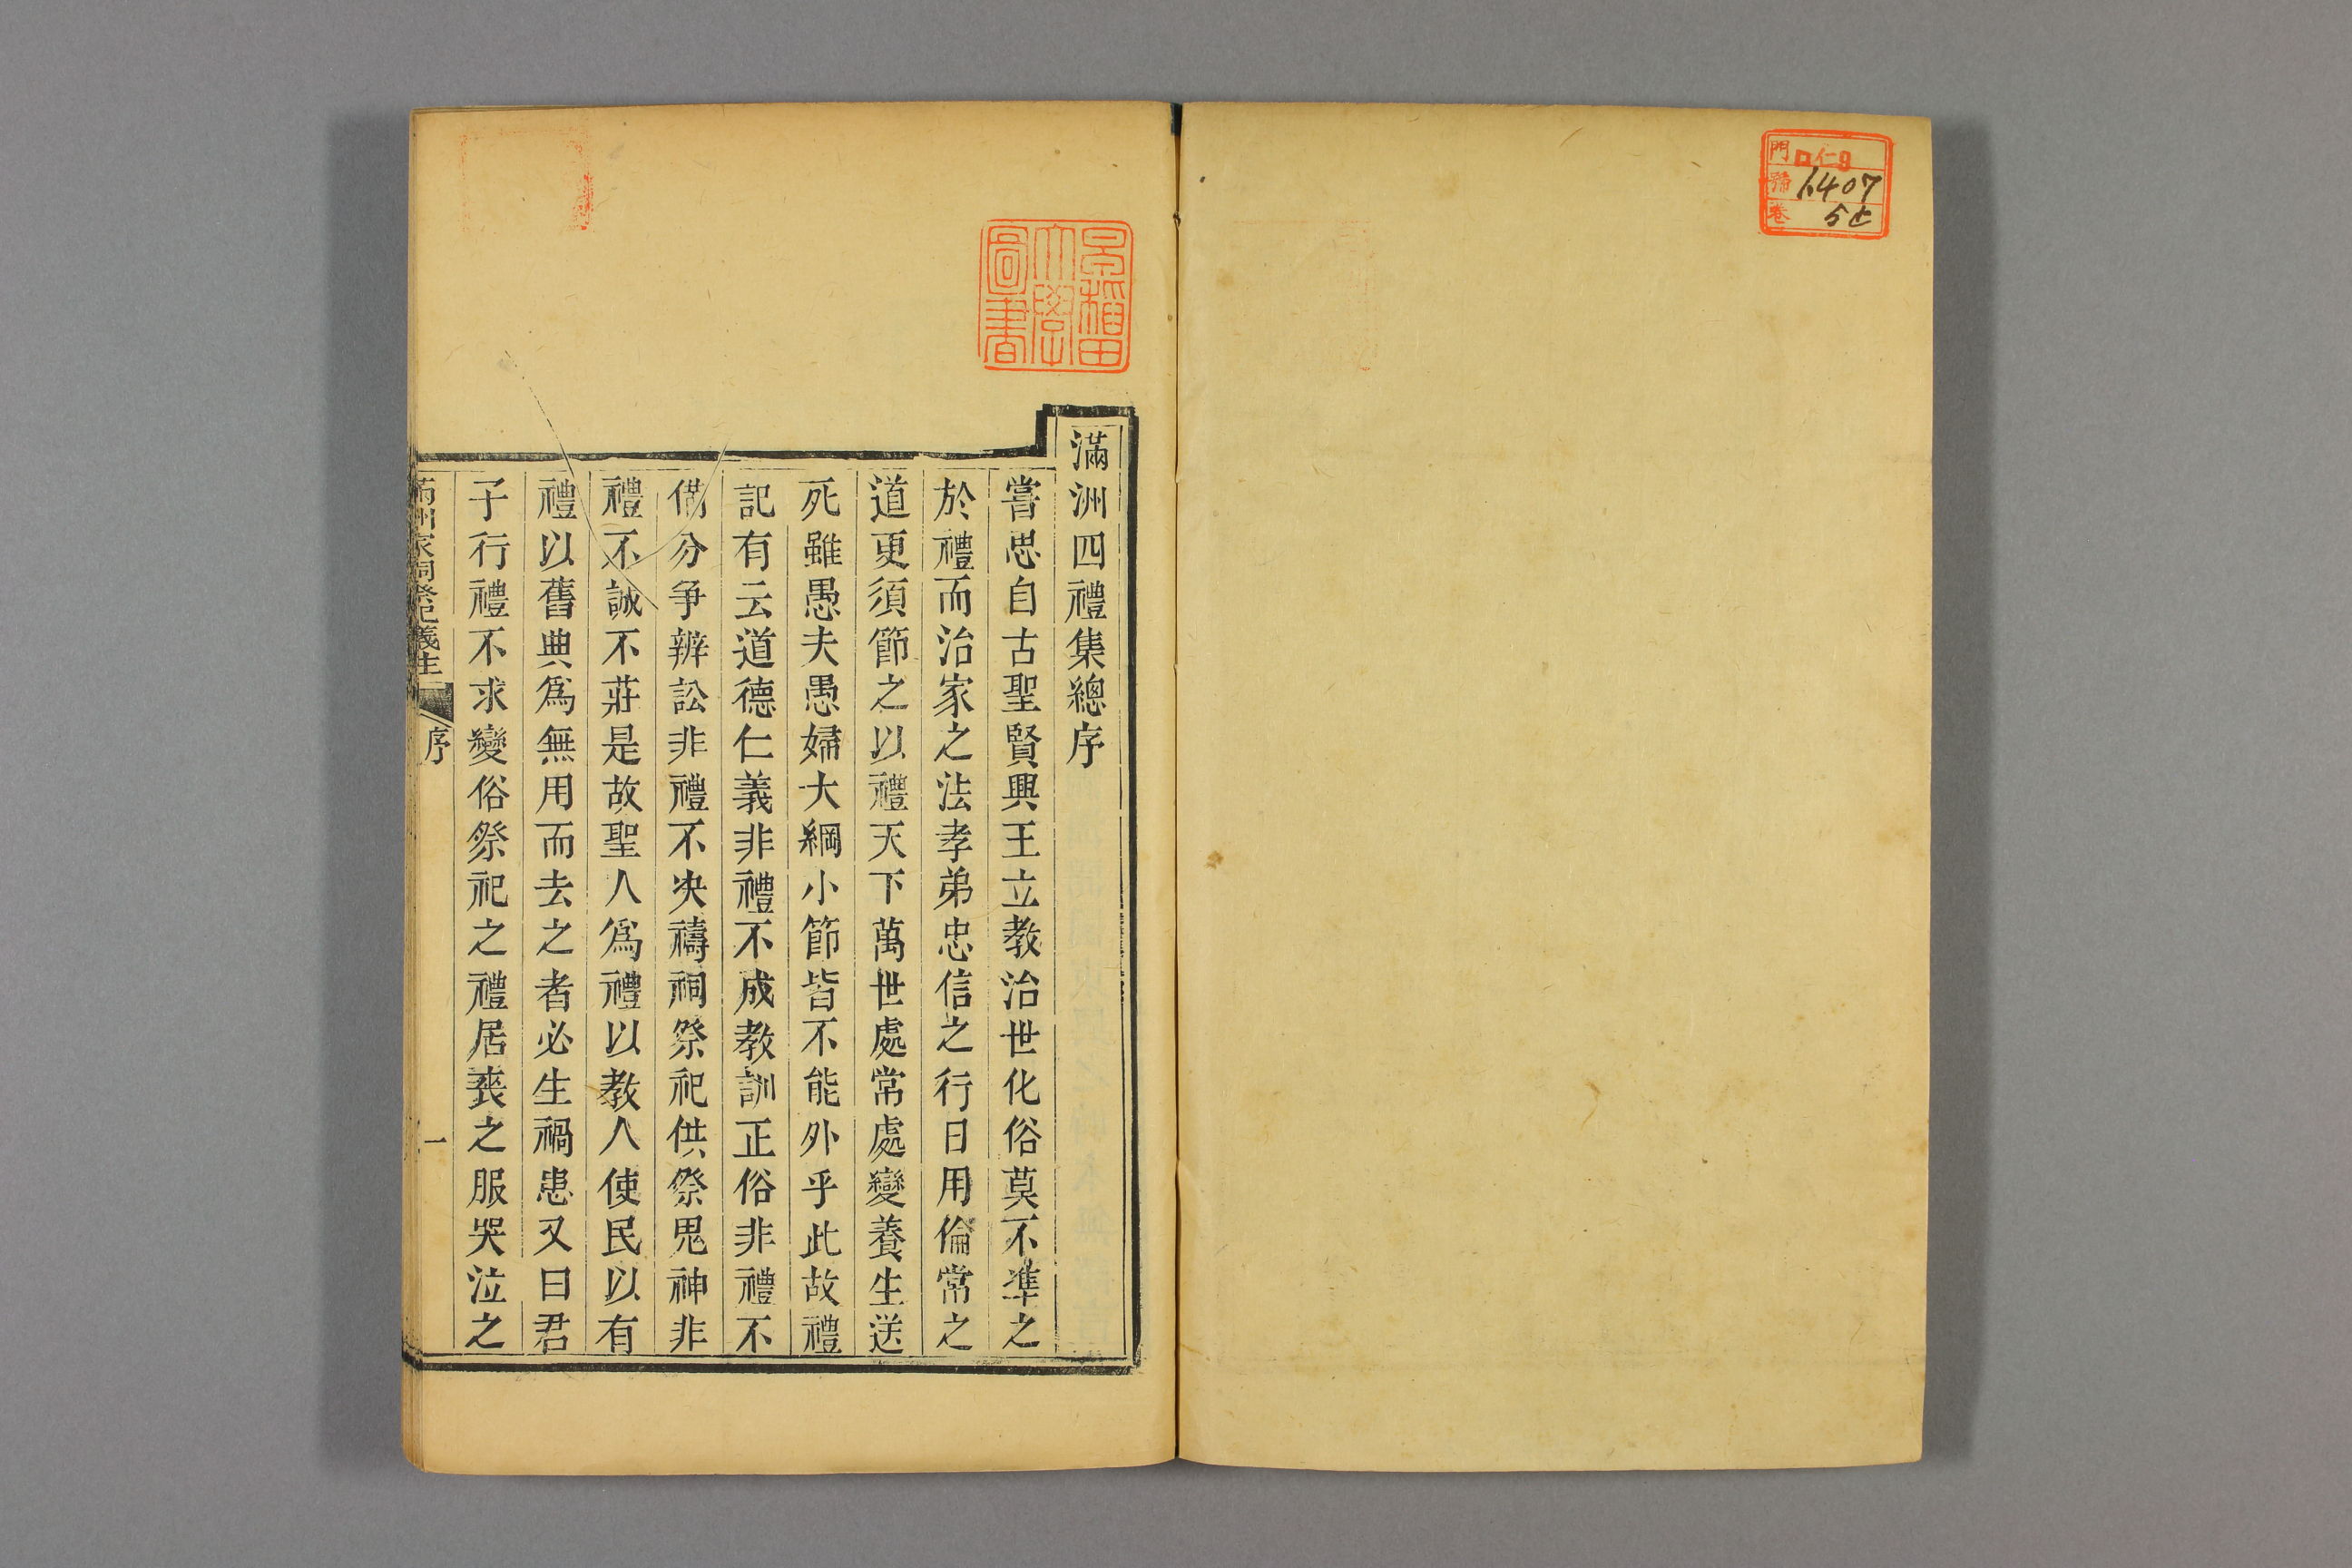 門 ロ仁9
號 1407
卷 5止
早稲田
大學
圖書
滿洲四禮集總序
嘗思自古聖賢興王立教治世化俗莫不凖之
於禮而治家之法孝弟忠信之行日用倫常之
道更須節之以禮天下萬世處常處變養生送
死雖愚夫愚婦大綱小節皆不能外乎此故禮
記有云道德仁義非禮不成教訓正俗非禮不
僃分爭辨訟非禮不决禱祠祭祀供祭鬼神非
禮不誠不莊是故聖人爲禮以教人使民以有
禮以舊典爲無用而去之者必生禍患又曰君
子行禮不求變俗祭祀之禮居喪之服哭泣之
滿洲家祠祭祀儀注 序 一